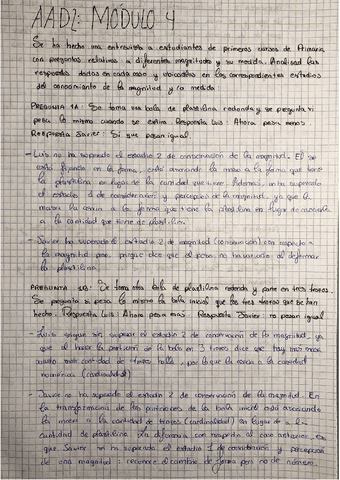 AAD2: MÓDULO 4
Se ha hecho una entrevista a estudiantes de primeros cursos de Primaria
con preguntas relativas a diferentes magnitudes y su medida. Analizad las
respuestas dadas en cada caso y en los correspondientes estadios
del conocimiento de la magnitud y/o medida:
PREGUNTA 1A: Se toma una bola de plastilina redonda y se pregunta si
pesa lo mismo cuando se estira. Respuesta Luis: Ahora pesa menos.
Respuesta Javier: Si que pesan igual.
- Luis no ha superado el estadio 2 de conservación de la magnitud. Él se
está fijando en la forma, está asociando la masa a la forma que tiene
la plastilina en lugar de la cantidad que tiene. Además, no ha superado
el estadio 1 de consideración y percepción de la magnitud, ya que la
la forma que tiene la plastilina en lugar de
a la cantidad que tiene de plastilina.
- Javier ha superado el estadio 2 de magnitud (conservación) con respecto a
la magnitud peso, porque dice que el peso no ha variado al deformar
la plastilina.
PREGUNTA 1B: Se toma otra bola de plastilina redonda y parte en tres trozos.
Se pregunta si pesa lo mismo la bola inicial que los tres trozos que se han
hecho. Respuesta Luis: Ahora pesa más. Respuesta Javier: no pesan igual
- Luis sigue sin superar el estadio 2 de conservación de la magnitud, ya
que al hacer la partición de la bola en 3 trozos dice que hay más masa
cantidad de trozos, por lo que la asocia a la cantidad
numérica (cardinalidad)
- Javier no ha superado el estadio 2 de conservación de la magnitud. En
la transformación de las particiones de la bola inicial está asociando
la masa a la cantidad de trozos (cardinalidad) en lugar de a la
cantidad de plastilina. La diferencia con respecto al caso anterior, es
que Javier no ha superado el estadio 1 de consideración y percepción
de una magnitud: reconoce el cambio de forma pero no de número.